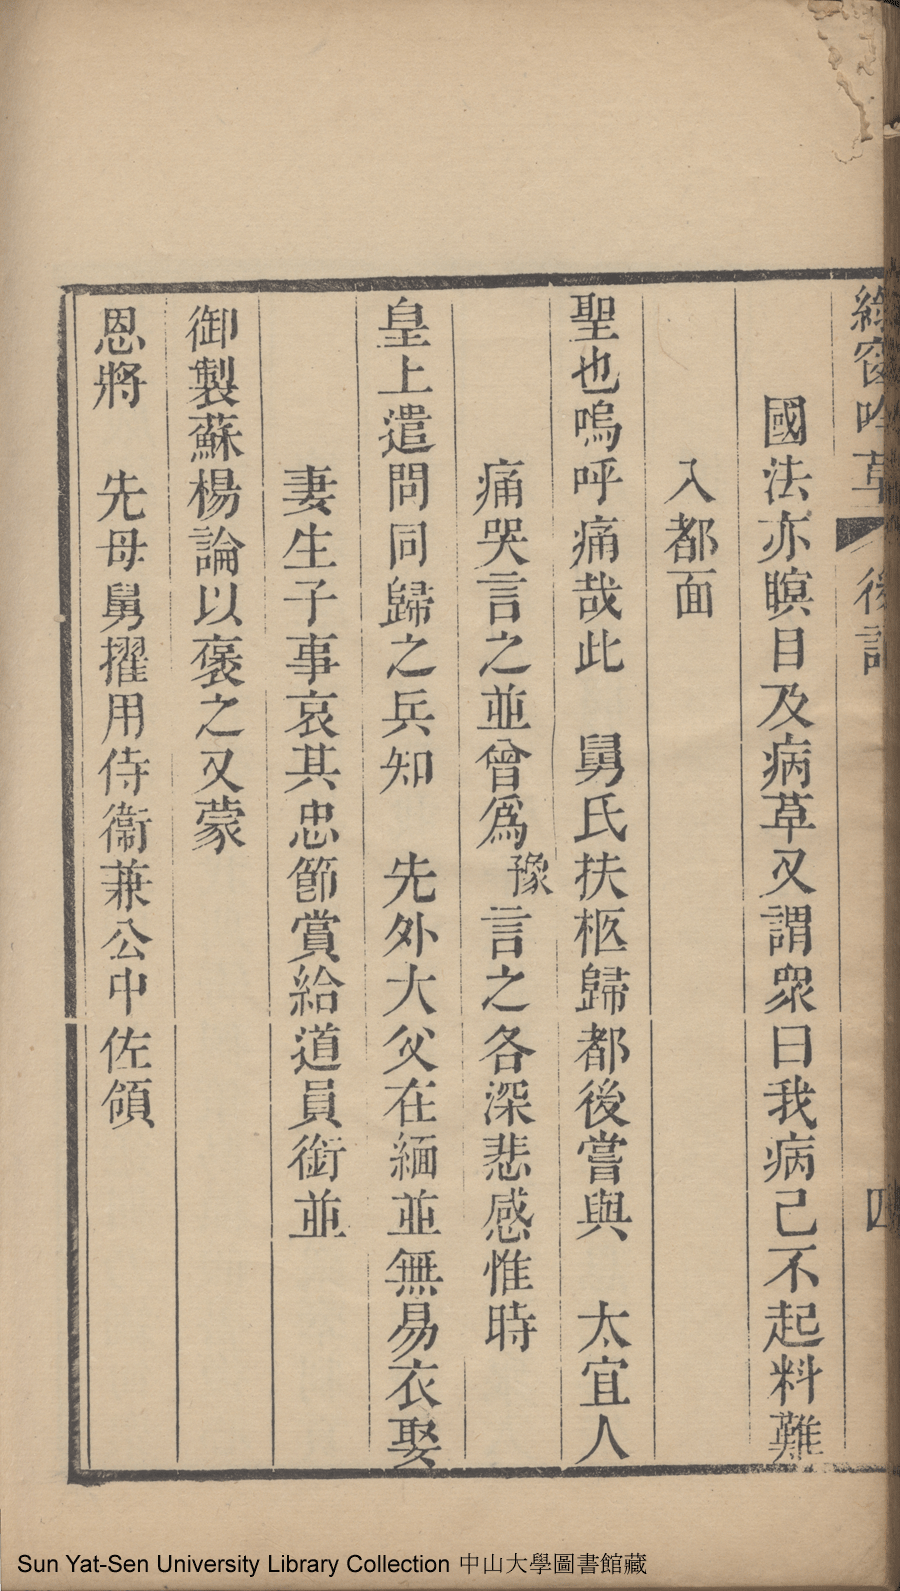 綠窗吟草 後記 四
國法亦瞑目及病草又謂眾曰我病已不起料難
入都面
聖也嗚呼痛哉此 舅氏扶柩歸都後嘗與 太宜人
痛哭言之並曾爲豫言之各深悲感惟時
皇上遣問同歸之兵知 先外大父在緬並無易衣娶
妻生子事哀其忠節賞給道員銜並
御製蘇楊論以褒之又蒙
恩將 先母舅擢用侍衞兼公中佐領
Sun Yat-Sen University Library Collection 中山大學圖書館藏